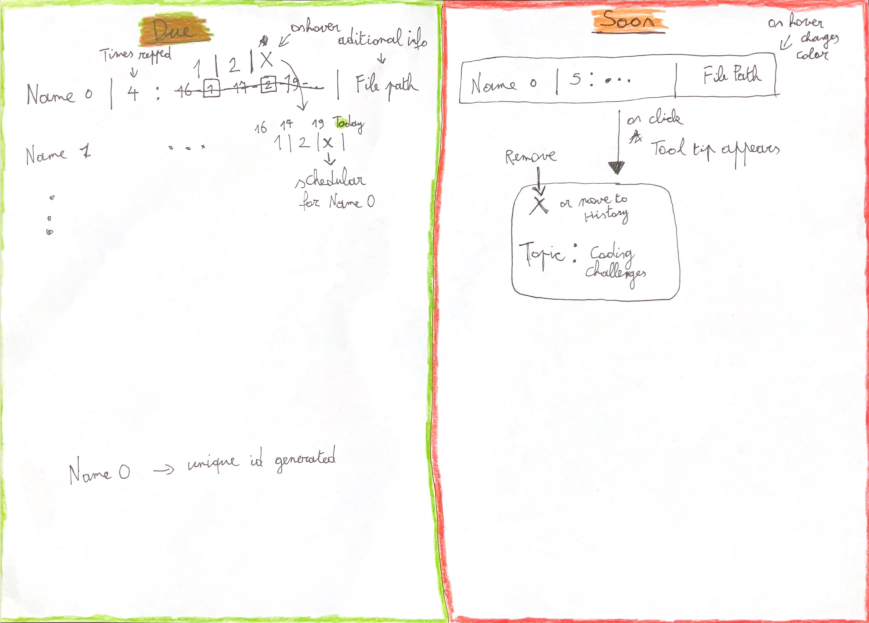 Due
on hover
aditional info
Times repped
1 | 2 | X
Name 0 | 4 : 16 - 1 - 17 - 2 - 19 - | File path
16 17 19 Today
Name 1 ... 1 | 2 | x |
schedular
for Name 0
Name 0 → unique id generated
Soon
on hover
changes
color
Name 0 | 5 : ... | File Path
on click
Tool tip appears
Remove
X or move to
History
Topic : Coding
challenges